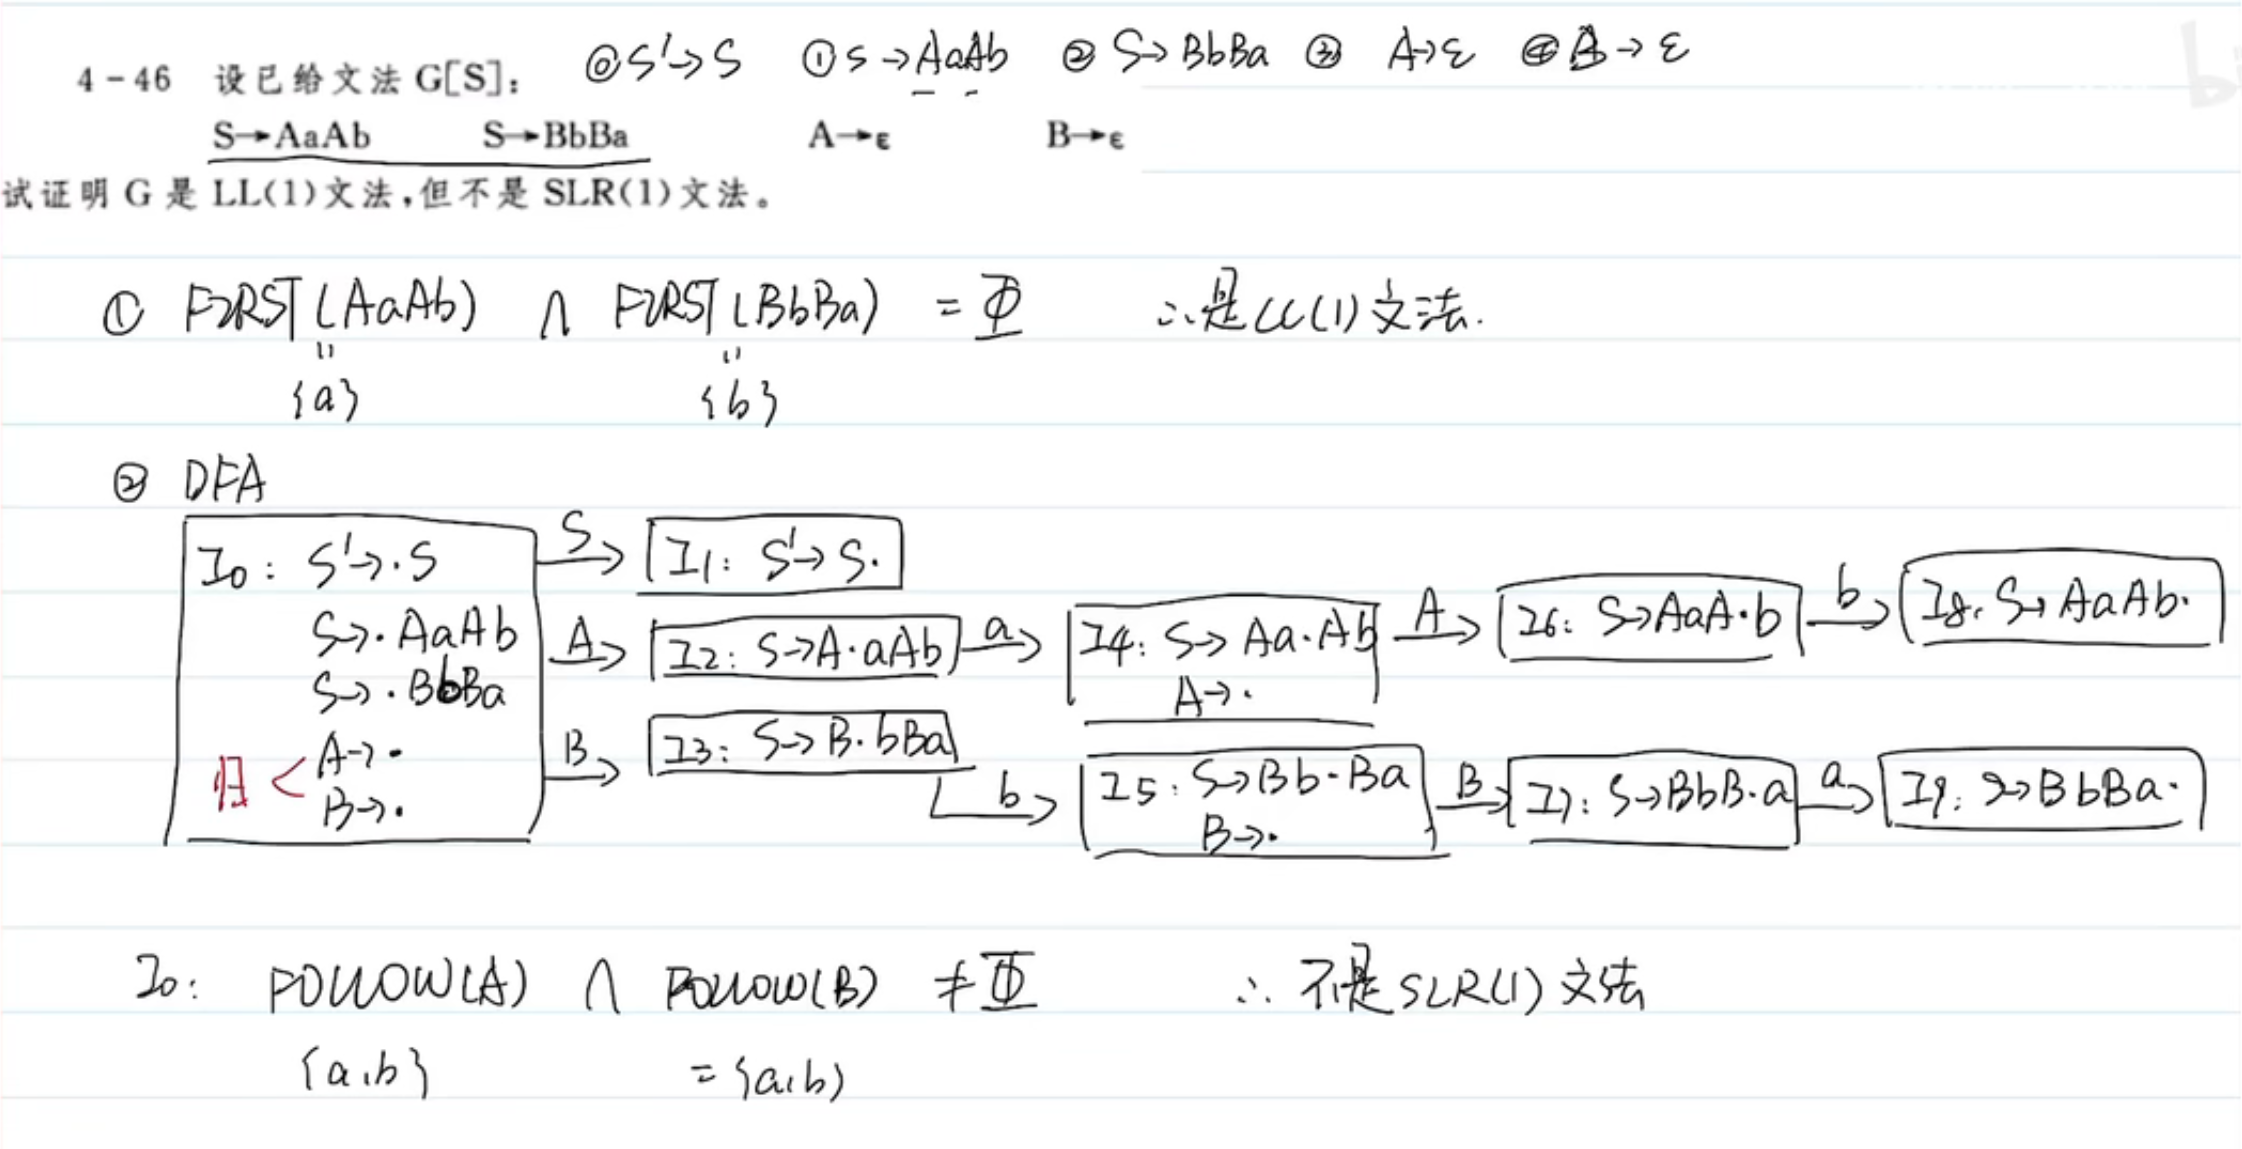 ⓪S'→S ①S→AaAb ②S→BbBa ③ A→ε ④B→ε
4-46 设已给文法 G[S]:
S→AaAb S→BbBa A→ε B→ε
试证明 G 是 LL(1)文法,但不是 SLR(1)文法。
① FIRST(AaAb) ∩ FIRST(BbBa) = Φ ∴是LL(1)文法.
" "
{a} {b}
② DFA
I0: S'→.S
S→.AaAb
S→.BbBa
归 < A→.
B→.
S
I1: S'→S.
A
I2: S→A.aAb
a
I4: S→Aa.Ab
A→.
A
I6: S→AaA.b
b
I8: S→AaAb.
B
I3: S→B.bBa
b
I5: S→Bb.Ba
B→.
B
I7: S→BbB.a
a
I9: S→BbBa.
I0: FOLLOW(A) ∩ FOLLOW(B) ≠Φ ∴ 不是SLR(1)文法
{a,b} ={a,b}